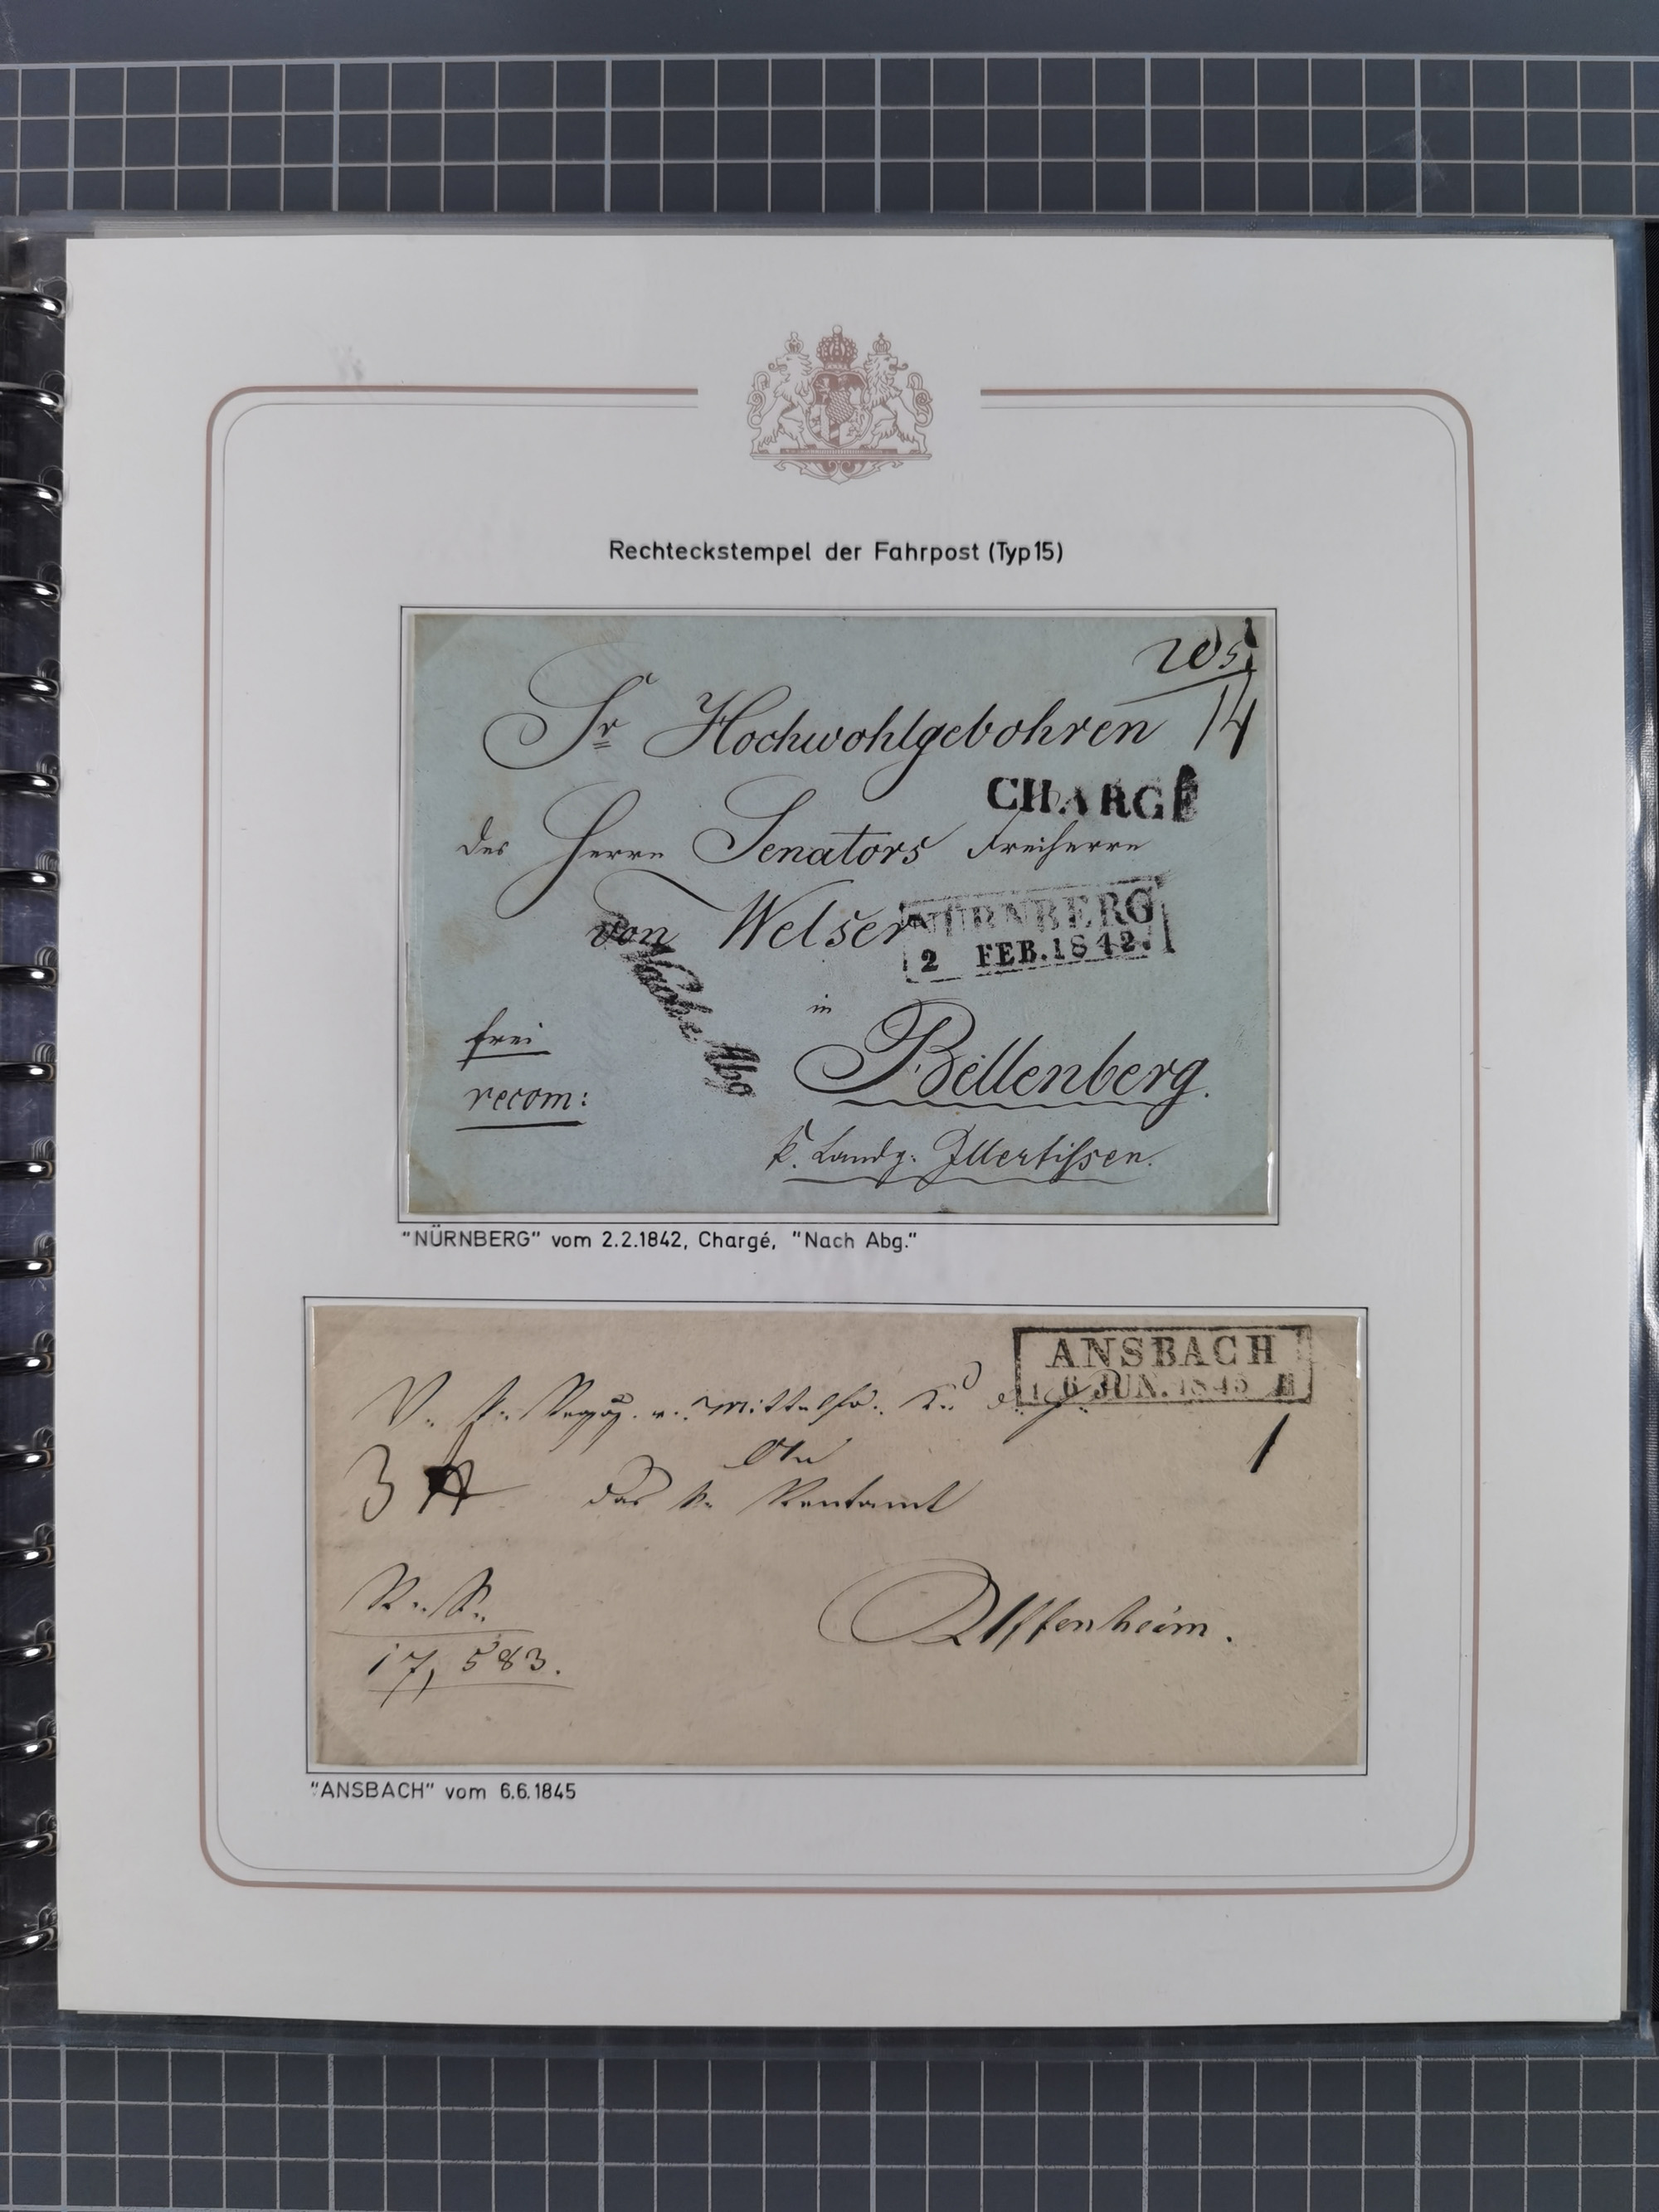 Rechteckstempel der Fahrpost (Typ 15)
Sr Hochwohlgebohren
14
CHARGÉ
des Herrn Senators Freiherrn
von Welser
NÜRNBERG
2 FEB. 1842.
Nach Abg
in
frei
Bellenberg.
recom:
k. Landg. Illertissen.
"NÜRNBERG" vom 2.2.1842, Chargé, "Nach Abg."
ANSBACH
6 JUN. 1845
An
1
3
das k. Rentamt
Uffenheim.
17,583.
"ANSBACH" vom 6.6.1845